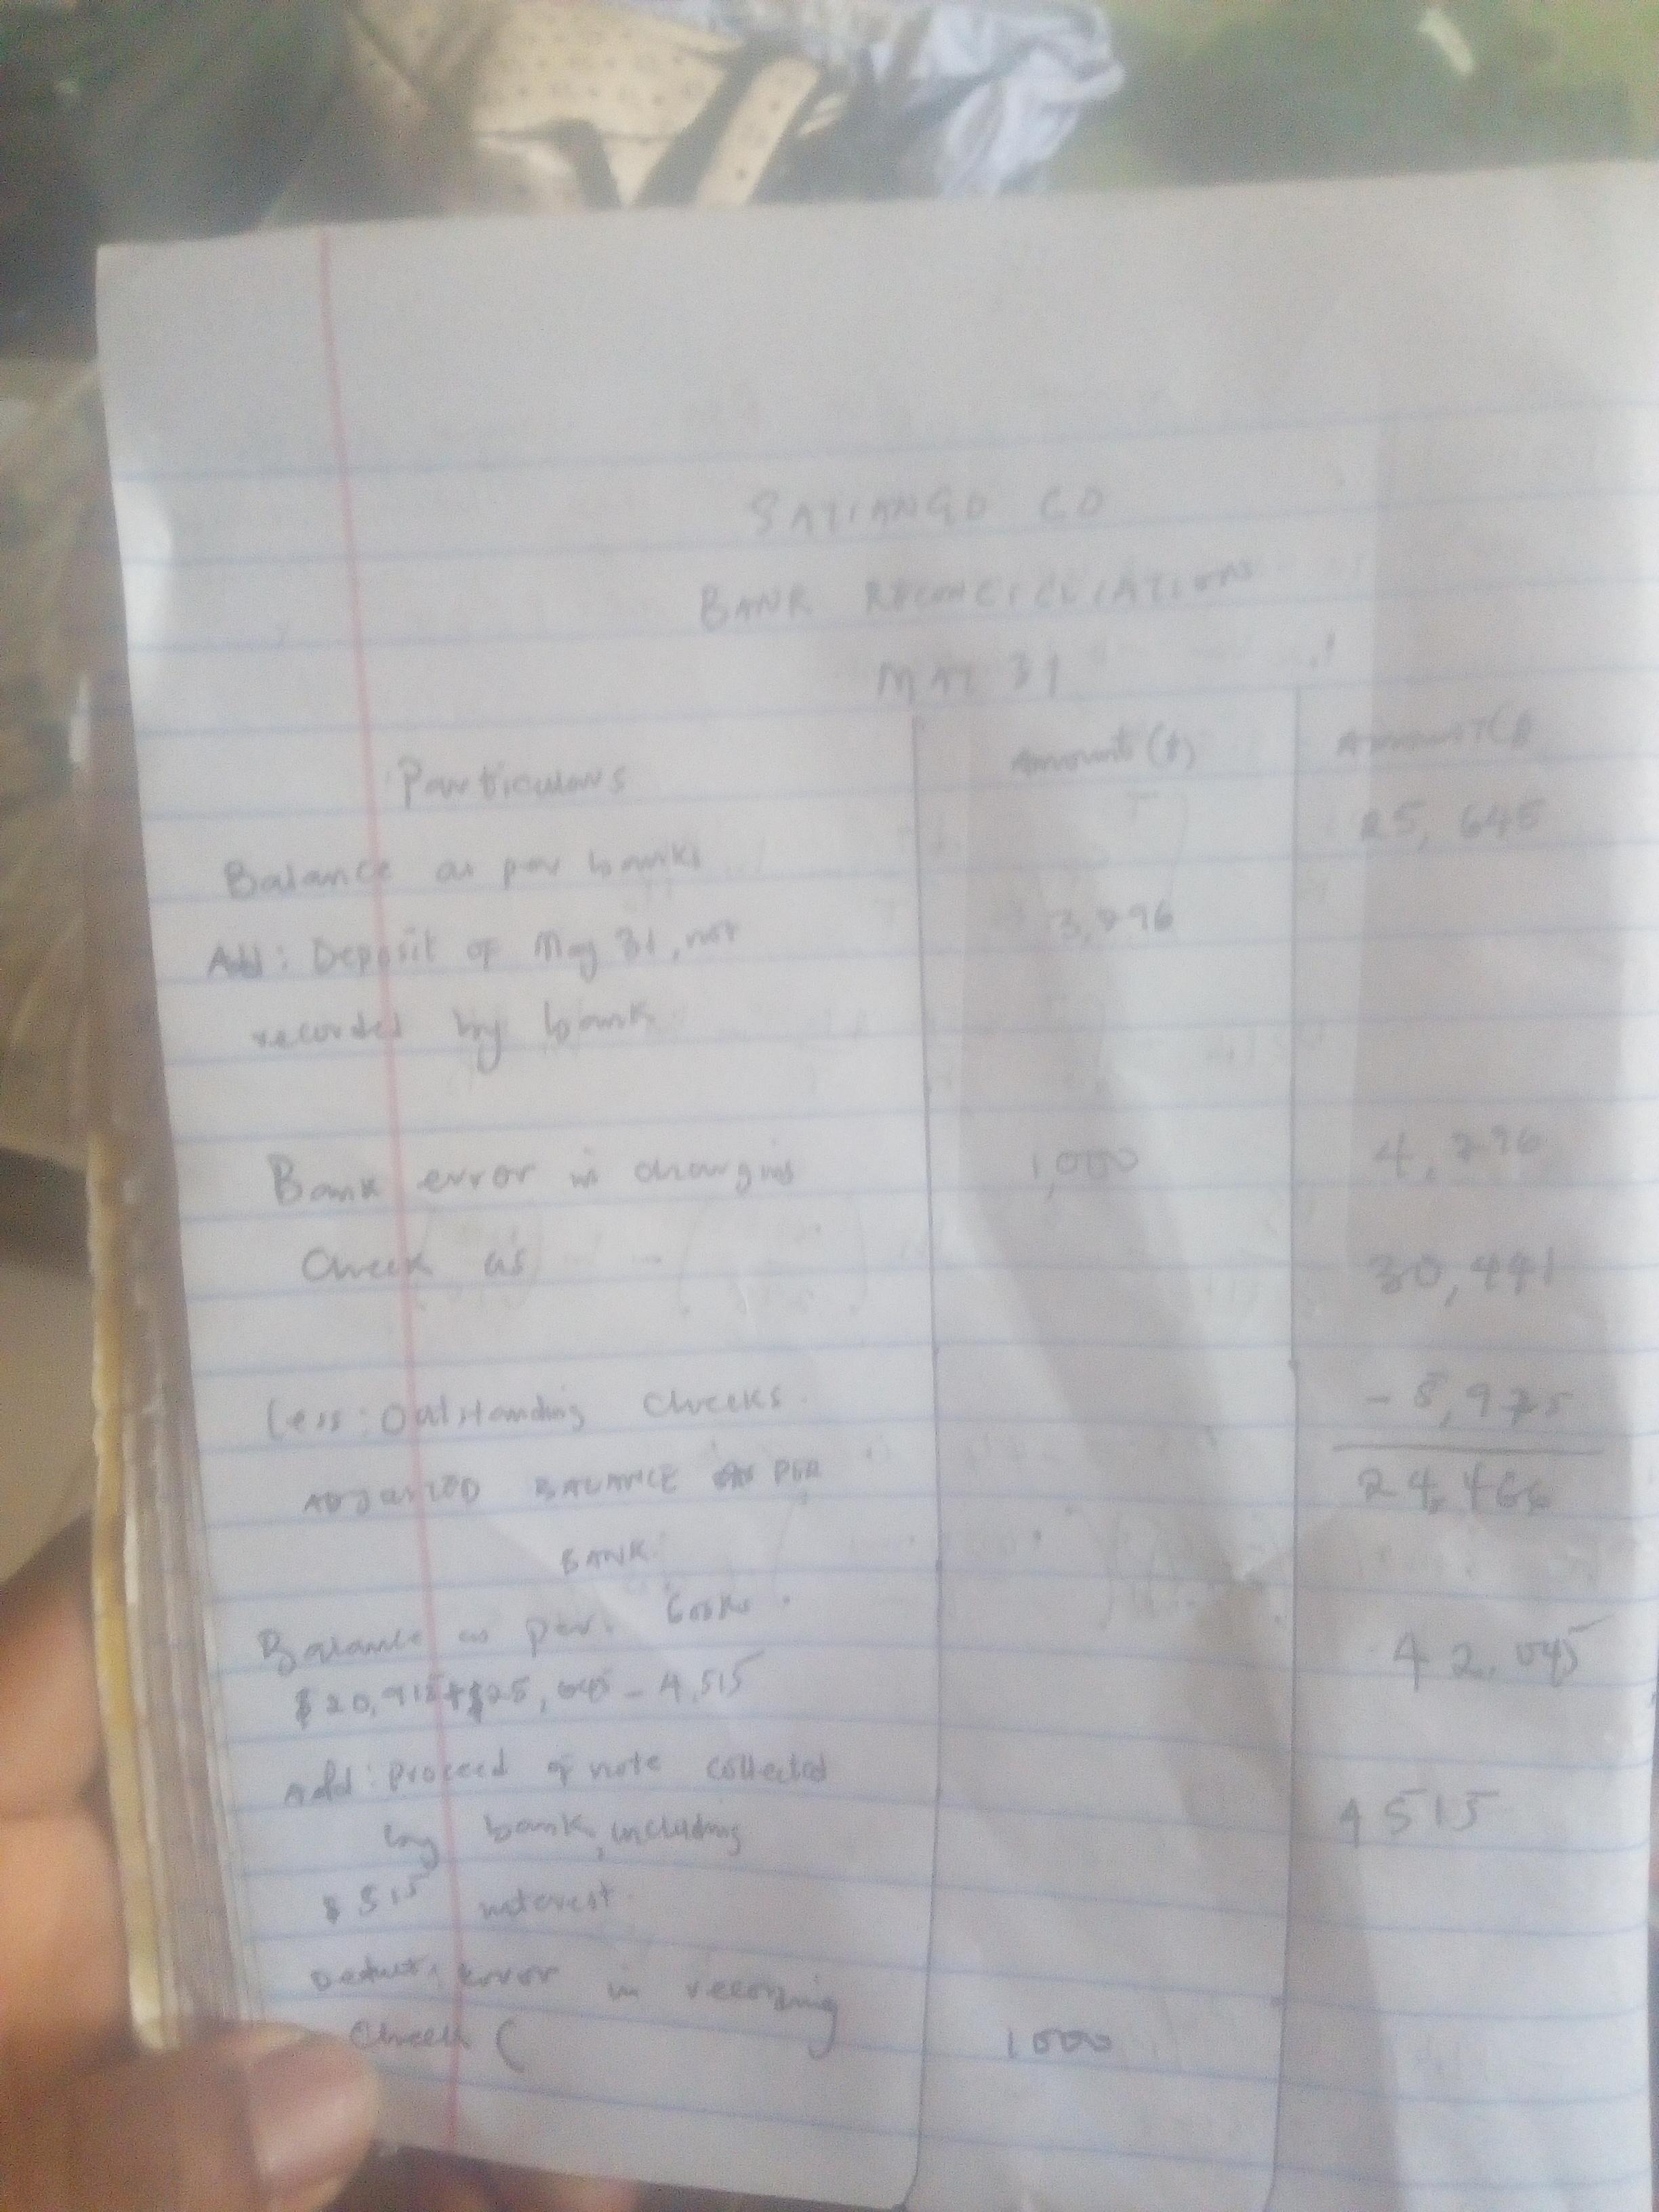 SATIANGO CO
BANK RECONCILIATIONS
MAY 31
Particulars Amount ($) Amount ($
Balance as per banks 25, 645
Add: Deposit of May 31, not 3,796
recorded by bank
Bank error in charging 1,000 4,796
Check as 30,441
Less: Outstanding Checks. - 5,975
ADJUSTED BALANCE AS PER 24,466
BANK.
Balance as per. books. 42,045
$20,915+$25,645 - 4,515
Add: Proceed of note collected
by bank, including 4515
$ 515 interest.
Deduct: Error in recording
Check ( 1000